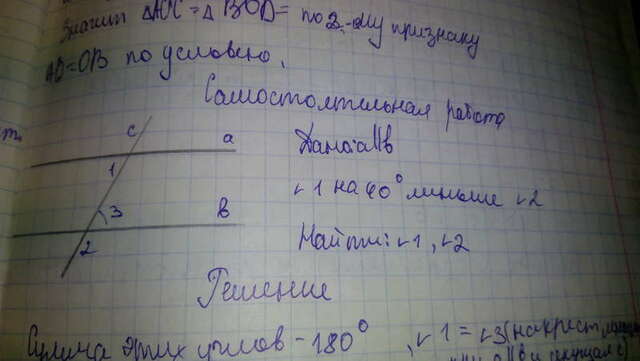 Значит △AOC = △BOD = по 2-ому признаку
AO=OB по условию,
Самостоятельная работа
c
a
1
3
b
2
Дано: a||b
∠1 на 40° меньше ∠2
Найти: ∠1, ∠2
Решение
Сумма этих углов - 180°, ∠1 = ∠3 (накрест